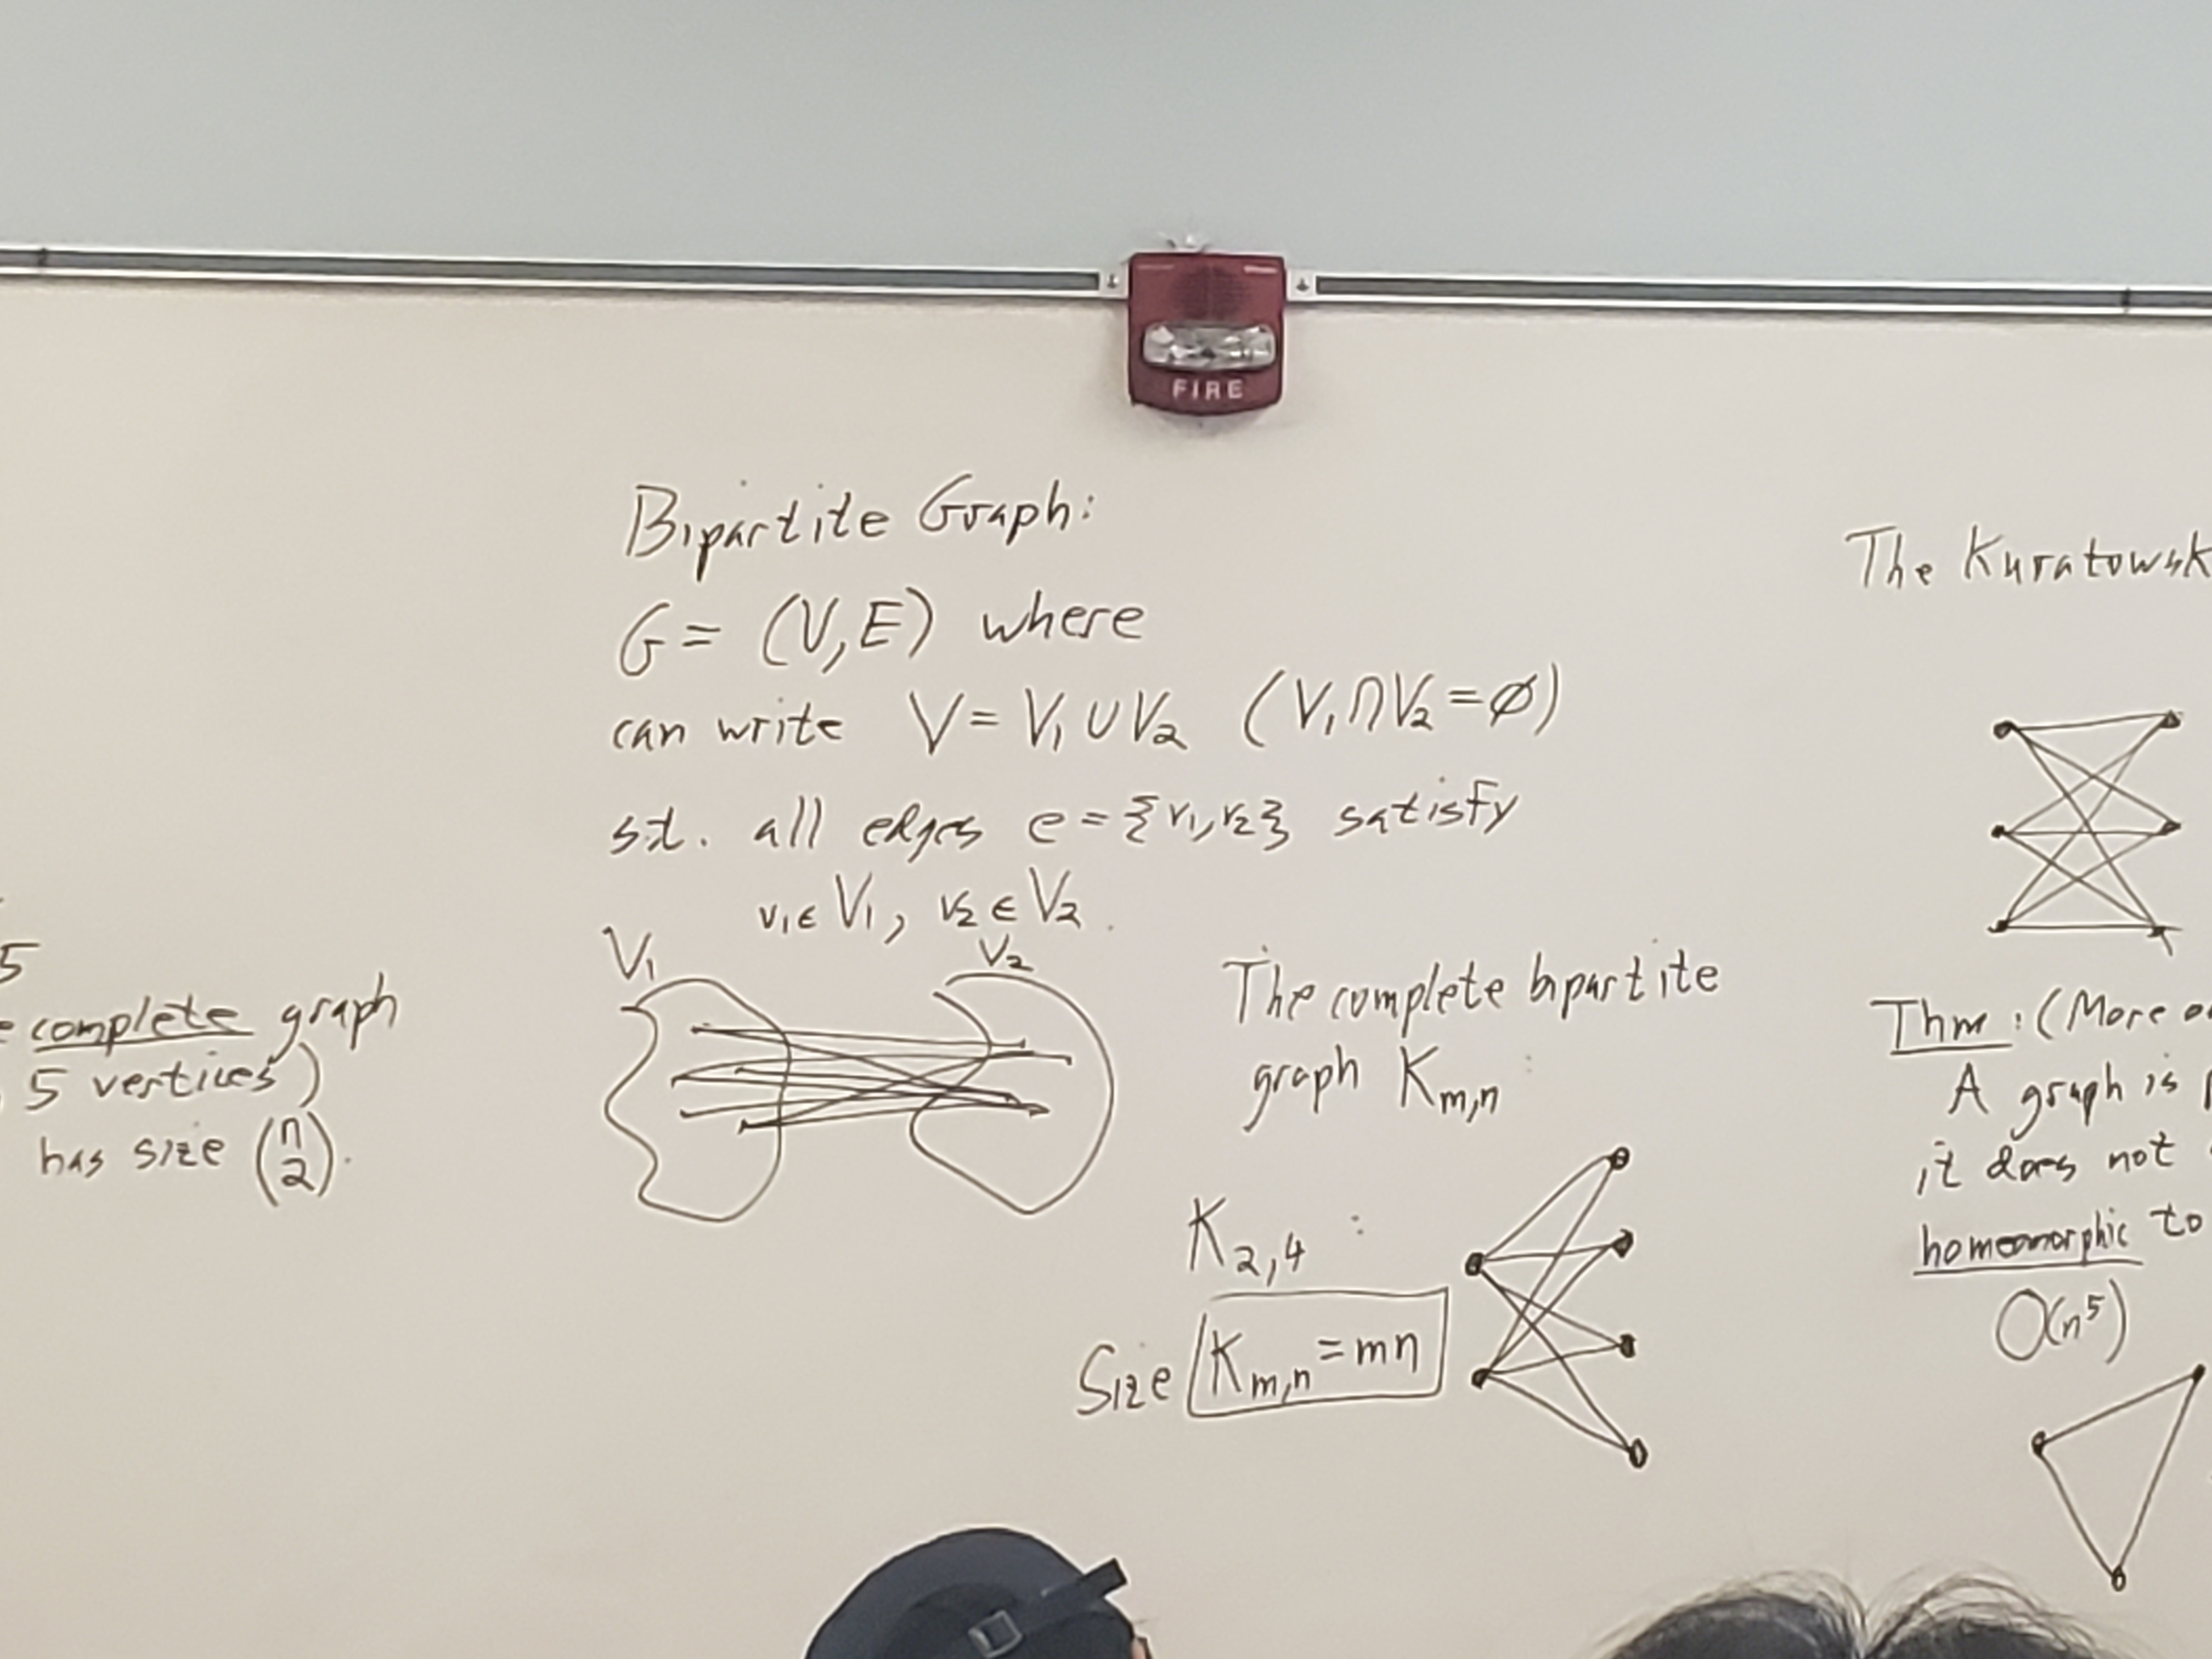 FIRE
5
complete graph
5 vertices)
has size (n 2).
Bipartite Graph:
G = (V,E) where
can write V = V₁ ∪ V₂ (V₁ ∩ V₂ = ∅)
s.t. all edges e = {v₁, v₂} satisfy
v₁ ∈ V₁, v₂ ∈ V₂.
V₁ V₂
The complete bipartite
graph Kₘ,ₙ :
K₂,₄ :
Size Kₘ,ₙ = mn
The Kuratowsk
Thm: (More o
A graph is
it does not
homeomorphic to
O(n⁵)